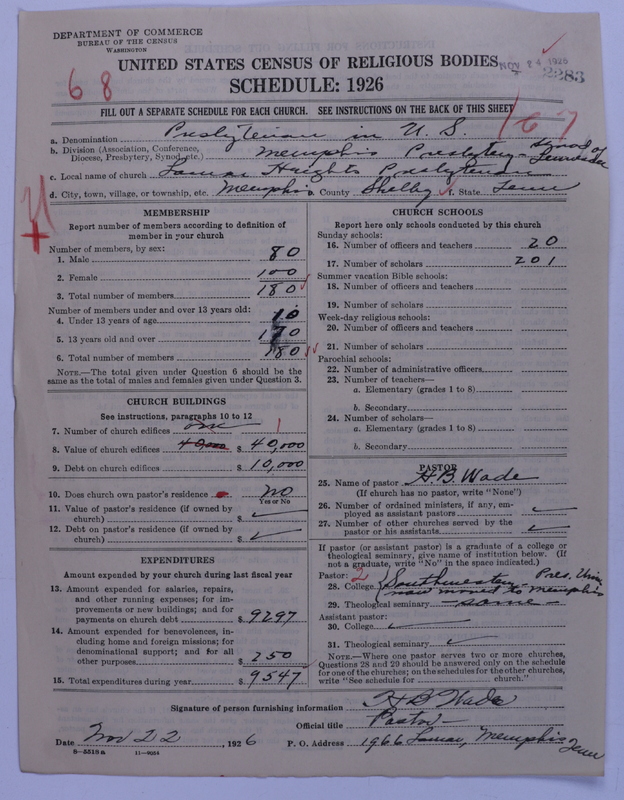 DEPARTMENT OF COMMERCE
BUREAU OF THE CENSUS
WASHINGTON
UNITED STATES CENSUS OF RELIGIOUS BODIES
NOV 24 1926
2283
SCHEDULE: 1926
68
FILL OUT A SEPARATE SCHEDULE FOR EACH CHURCH. SEE INSTRUCTIONS ON THE BACK OF THIS SHEET
167
a. Denomination Presbyterian in U. S.
b. Division (Association, Conference, Diocese, Presbytery, Synod, etc.) Memphis Presbytery - Synod of Tennessee
c. Local name of church Lamar Heights Presbyterian
d. City, town, village, or township, etc. Memphis e. County Shelby f. State Tenn
71
MEMBERSHIP
Report number of members according to definition of
member in your church
Number of members, by sex:
1. Male 80
2. Female 100
3. Total number of members 180
Number of members under and over 13 years old:
4. Under 13 years of age 10
5. 13 years old and over 170
6. Total number of members 180
NOTE.—The total given under Question 6 should be the
same as the total of males and females given under Question 3.
CHURCH BUILDINGS
See instructions, paragraphs 10 to 12
7. Number of church edifices one 1
8. Value of church edifices 40,000 $ 40,000
9. Debt on church edifices $ 10,000
10. Does church own pastor's residence No
Yes or No
11. Value of pastor's residence (if owned by
church) $ ✓
12. Debt on pastor's residence (if owned by
church) $ ✓
EXPENDITURES
Amount expended by your church during last fiscal year
13. Amount expended for salaries, repairs,
and other running expenses; for im-
provements or new buildings; and for
payments on church debt $ 9297
14. Amount expended for benevolences, in-
cluding home and foreign missions; for
denominational support; and for all
other purposes $ 250
15. Total expenditures during year $ 9547
CHURCH SCHOOLS
Report here only schools conducted by this church
Sunday schools:
16. Number of officers and teachers 20
17. Number of scholars 201
Summer vacation Bible schools:
18. Number of officers and teachers
19. Number of scholars
Week-day religious schools:
20. Number of officers and teachers
21. Number of scholars
Parochial schools:
22. Number of administrative officers
23. Number of teachers—
a. Elementary (grades 1 to 8)
b. Secondary
24. Number of scholars—
a. Elementary (grades 1 to 8)
b. Secondary
PASTOR
25. Name of pastor H. B. Wade
(If church has no pastor, write "None")
26. Number of ordained ministers, if any, em-
ployed as assistant pastors ✓
27. Number of other churches served by the
pastor or his assistants ✓
If pastor (or assistant pastor) is a graduate of a college or
theological seminary, give name of institution below. (If
not a graduate, write "No" in the space indicated.)
Pastor: 2
28. College Southwestern - Pres. Univ.
(now moved to Memphis
29. Theological seminary same
Assistant pastor:
30. College ✓
31. Theological seminary ✓
NOTE.—Where one pastor serves two or more churches,
Questions 28 and 29 should be answered only on the schedule
for one of the churches; on the schedules for the other churches,
write "See schedule for church."
Signature of person furnishing information H B Wade
Official title Pastor
Date Nov 22, 1926 P. O. Address 1966 Lamar, Memphis Tenn
8—5518a 11—9034